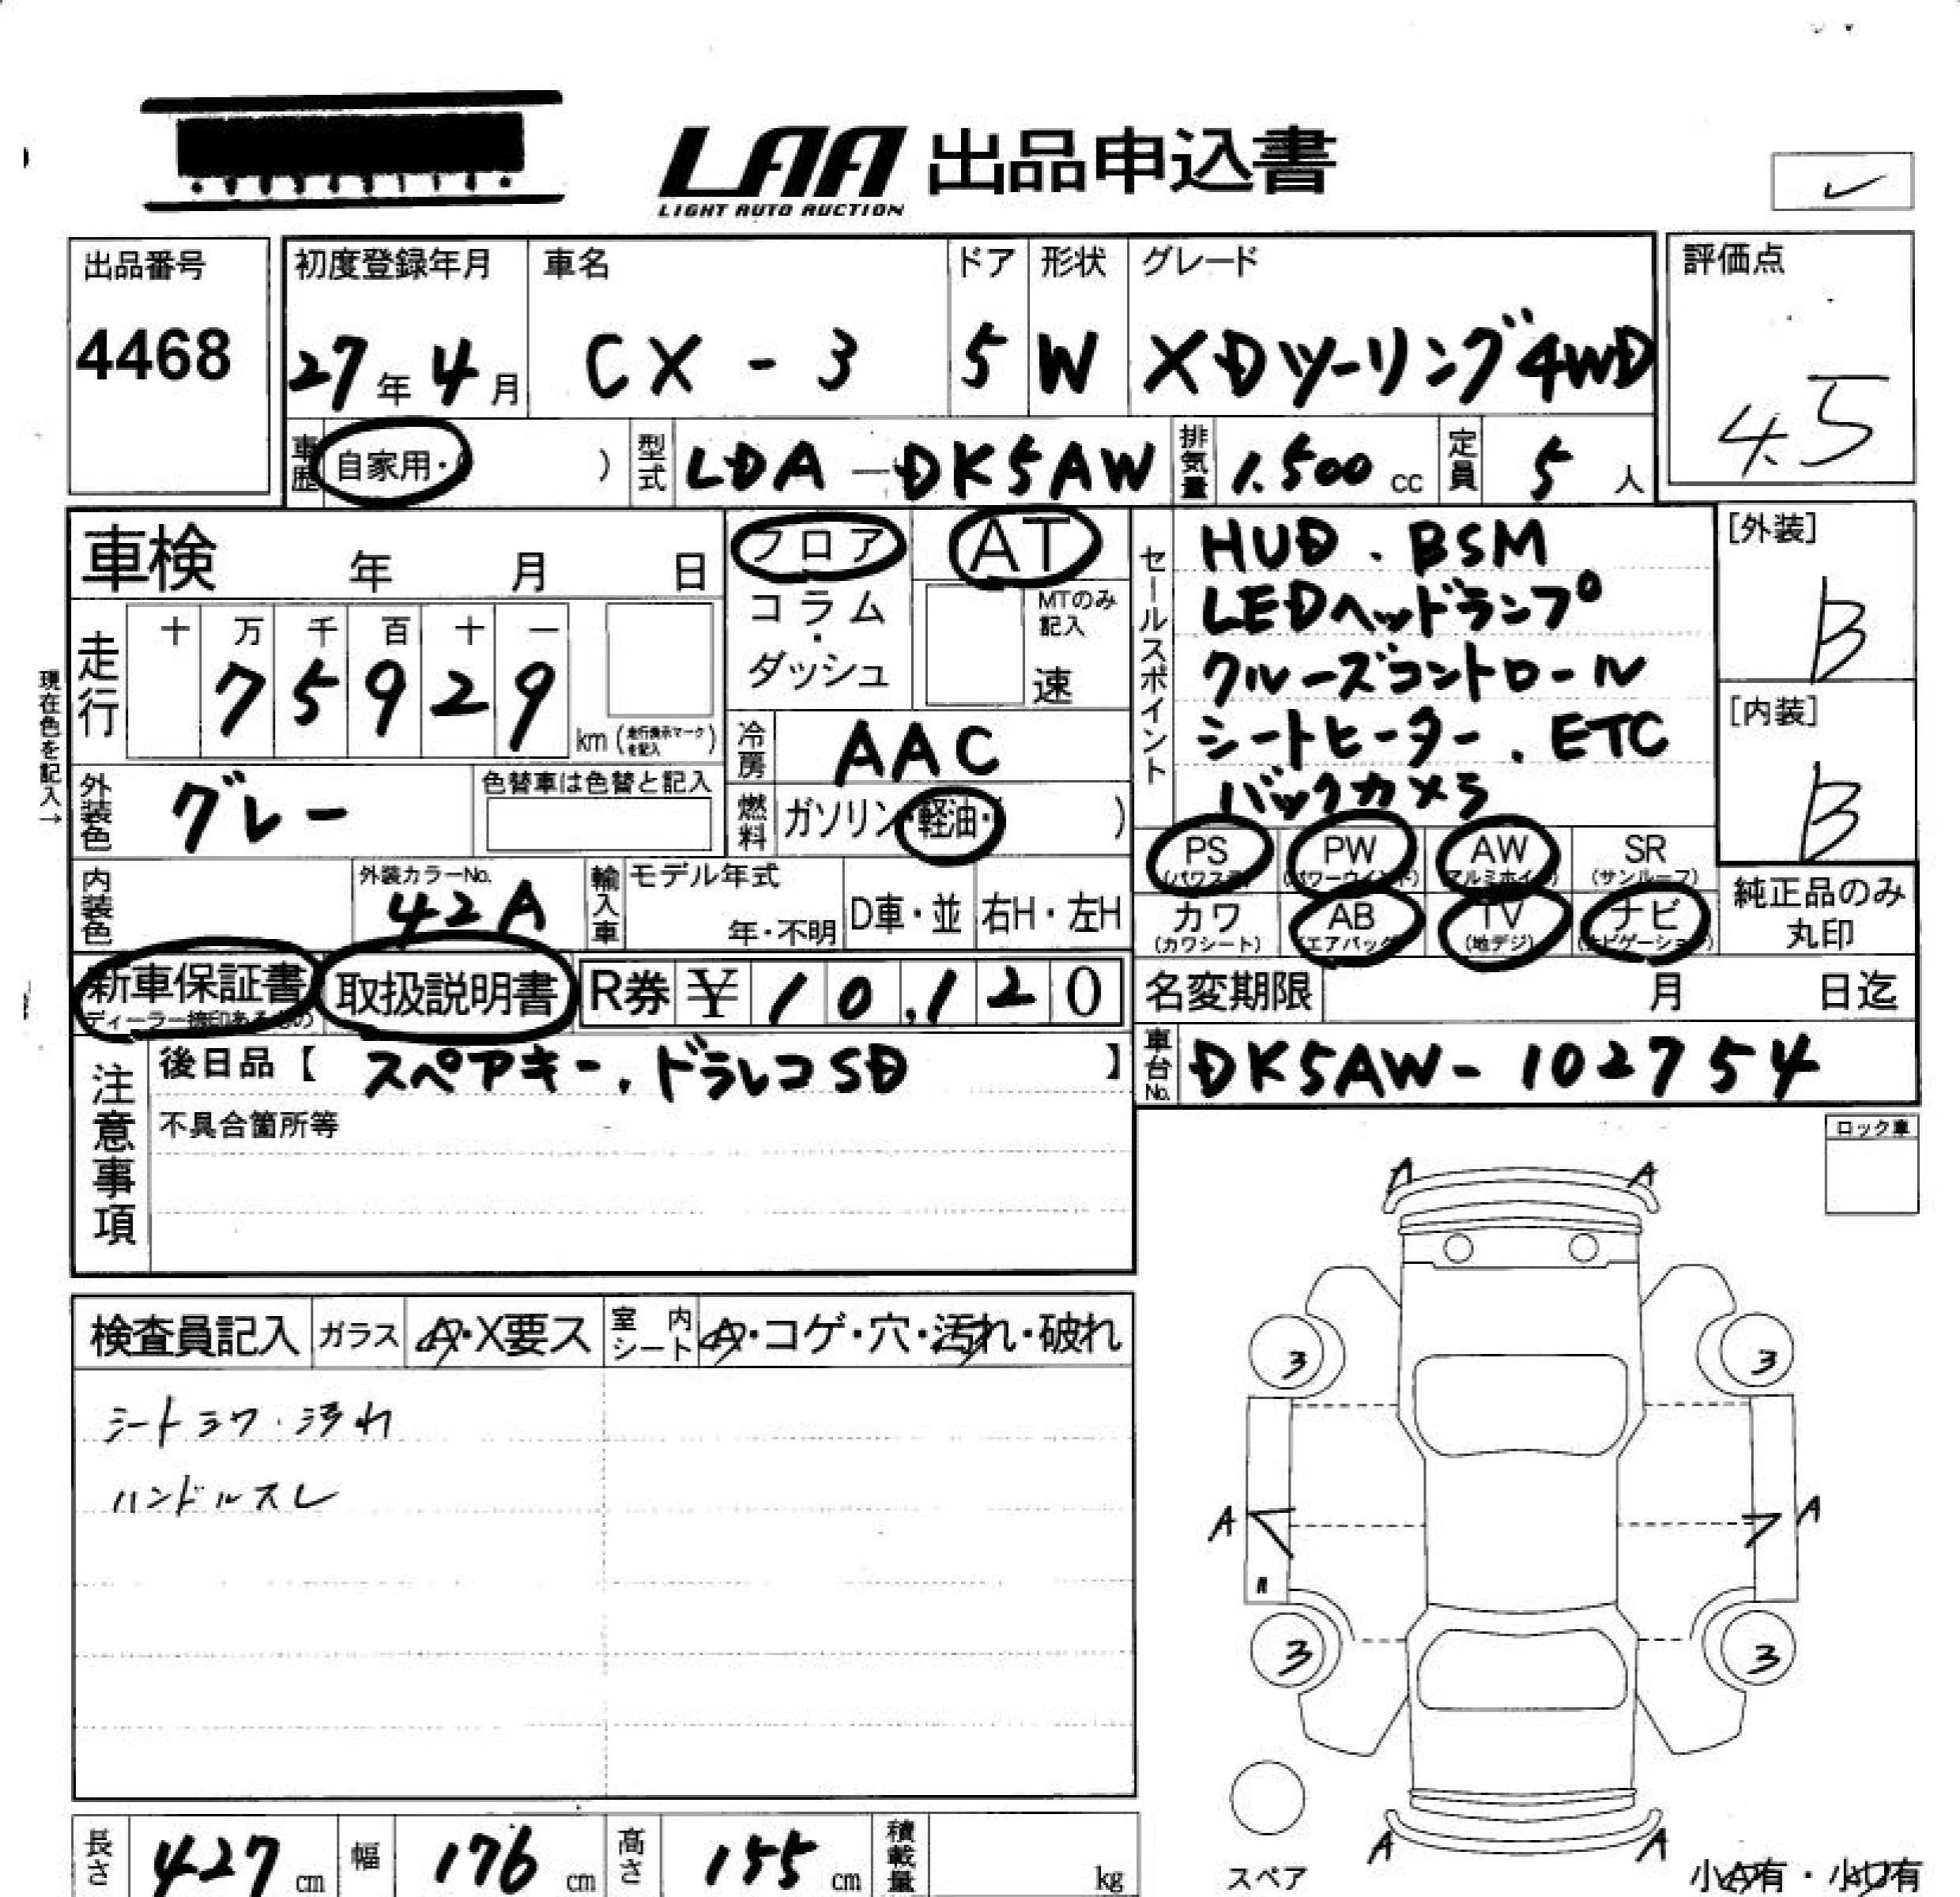 LAA 出品申込書
LIGHT AUTO AUCTION
✓
出品番号
4468
初度登録年月
27年4月
車名
CX-3
ドア
5
形状
W
グレード
XDツーリング4WD
評価点
4.5
車歴 自家用・( )
型式 LDA-DK5AW
排気量 1.500 cc
定員 5 人
車検 年 月 日
フロア
コラム・ダッシュ
AT
MTのみ記入
速
セールスポイント
HUD . BSM
LEDヘッドランプ
クルーズコントロール
シートヒーター . ETC
バックカメラ
[外装]
B
[内装]
B
現在色を記入→
走行
十 万 千 百 十 一
7 5 9 2 9
km (走行表示マークを記入)
冷房 AAC
外装色 グレー
色替車は色替と記入
燃料 ガソリン・軽油・( )
PS (パワステ) PW (パワーウインド) AW (アルミホイル) SR (サンルーフ)
カワ (カワシート) AB (エアバッグ) TV (地デジ) ナビ (ナビゲーション)
純正品のみ
丸印
内装色
外装カラーNo.
42A
輸入車 モデル年式
年・不明
D車・並 右H・左H
新車保証書
ディーラー捺印あるもの
取扱説明書
R券 ¥ 10,120
名変期限 月 日迄
車台No. DK5AW-102754
注意事項
後日品【 スペアキー, ドラレコSD 】
不具合箇所等
ロック車
検査員記入 ガラス A・X要ス 室内シート A・コゲ・穴・汚れ・破れ
シートシワ・汚れ
ハンドルスレ
A A
3 3
A A
3 3
A A
スペア
小A有・小U有
長さ 427 cm
幅 176 cm
高さ 155 cm
積載量 kg